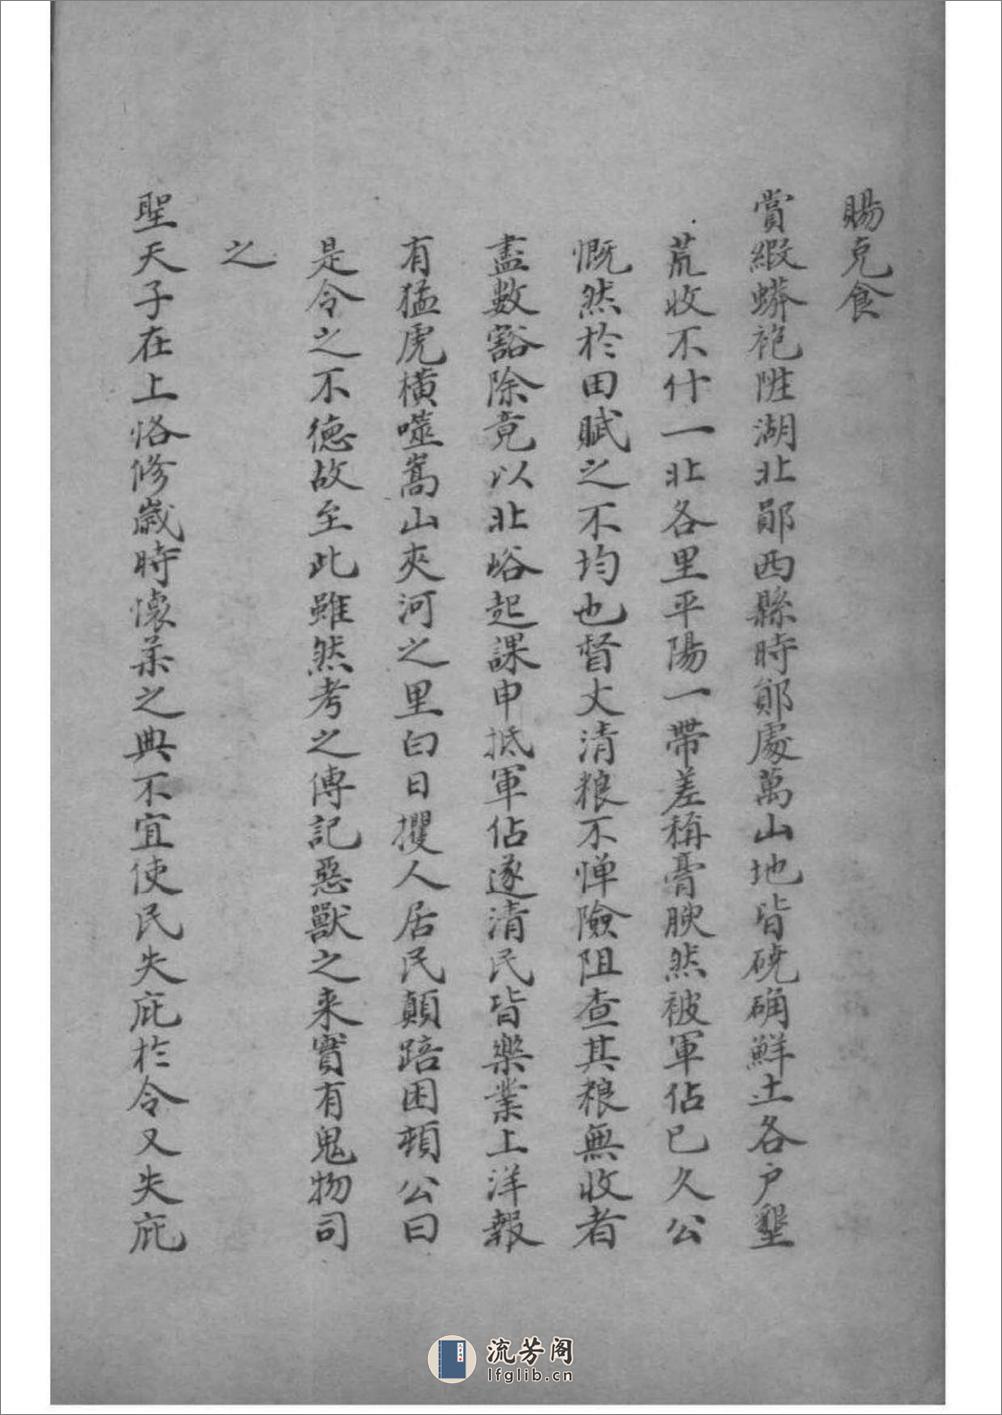 賜克食
賞緞蟒袍陞湖北鄖西縣時鄖處萬山地皆磽确鮮土各户墾
荒收不什一北各里平陽一帶差稱膏腴然被軍佔已久公
慨然於田賦之不均也督丈清粮不惮險阻查其粮無收者
盡數豁除竟以北峪起課申抵軍佔遂清民皆樂業上洋報
有猛虎横噬嵩山夾河之里白日攫人居民顛踣困頓公曰
是令之不德故至此雖然考之傳記惡獸之来實有鬼物司
之
聖天子在上恪修歲時懷柔之典不宜使民失庇於令又失庇
流芳阁
lfglib.cn